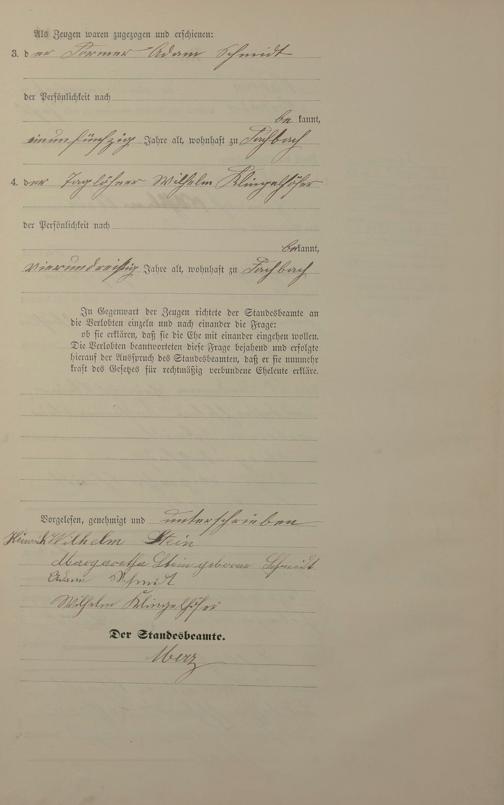 Als Zeugen waren zugezogen und erschienen:
3. der Former Adam Schmidt
der Persönlichkeit nach
be kannt,
einunfünfzig Jahre alt, wohnhaft zu Fachbach
4. der Taglöhner Wilhelm Klingelhöfer
der Persönlichkeit nach
bekannt,
vierundreißig Jahre alt, wohnhaft zu Fachbach
In Gegenwart der Zeugen richtete der Standesbeamte an
die Verlobten einzeln und nach einander die Frage:
ob sie erklären, daß sie die Ehe mit einander eingehen wollen.
Die Verlobten beantworteten diese Frage bejahend und erfolgte
hierauf der Ausspruch des Standesbeamten, daß er sie nunmehr
kraft des Gesetzes für rechtmäßig verbundene Eheleute erkläre.
Vorgelesen, genehmigt und unterschrieben
Wilhelm Stein
Margaretha Stein geborene Schmidt
Adam Schmidt
Wilhelm Klingelhöfer
Der Standesbeamte.
Merz